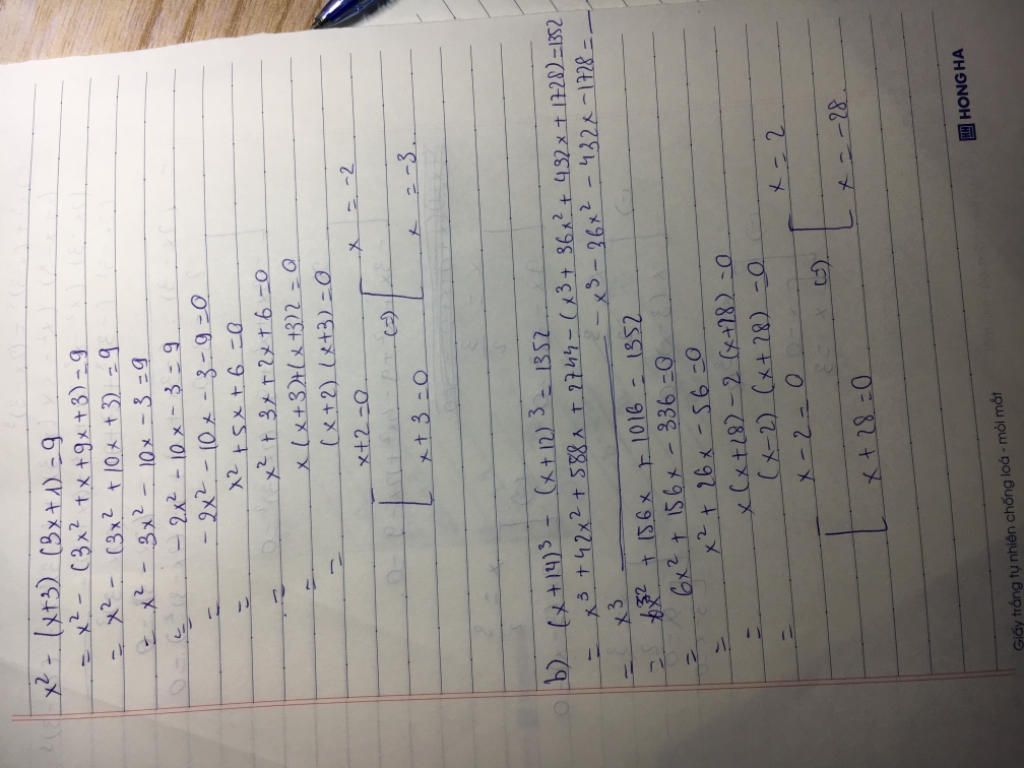 x² - (x+3) (3x+1) = 9
= x² - (3x² + x + 9x + 3) = 9
= x² - (3x² + 10x + 3) = 9
= x² - 3x² - 10x - 3 = 9
= - 2x² - 10x - 3 = 9
= - 2x² - 10x - 3 - 9 = 0
= x² + 5x + 6 = 0
= x² + 3x + 2x + 6 = 0
= x (x+3) + (x+3)2 = 0
= (x+2) (x+3) = 0
[ x+2=0 (=) [ x = -2
x+3=0 x = -3.
b) (x+14)³ - (x+12)³ = 1352
= x³ + 42x² + 588x + 2744 - (x³ + 36x² + 432x + 1728) = 1352
= x³ - x³ - 36x² - 432x - 1728 =
= 6x² + 156x + 1016 = 1352
= 6x² + 156x - 336 = 0
= x² + 26x - 56 = 0
= x (x+28) - 2 (x+28) = 0
= (x-2) (x+28) = 0
[ x - 2 = 0 (=) [ x = 2
x + 28 = 0 x = -28.
HONG HA
Giấy trắng tự nhiên chống lóa - mỏi mắt